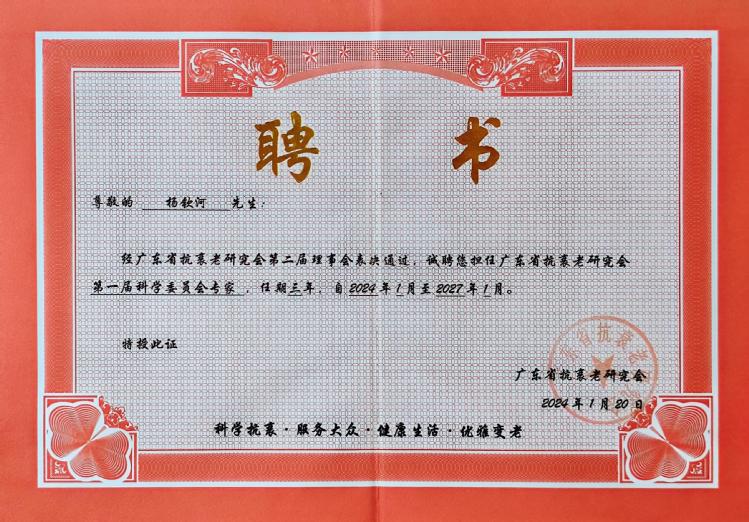 聘书
尊敬的 杨钦河 先生：
经广东省抗衰老研究会第二届理事会表决通过，诚聘您担任广东省抗衰老研究会
第一届科学委员会专家，任期三年，自2024年1月至2027年1月。
特授此证
广东省抗衰老研究会
2024年1月20日
科学抗衰·服务大众·健康生活·优雅变老